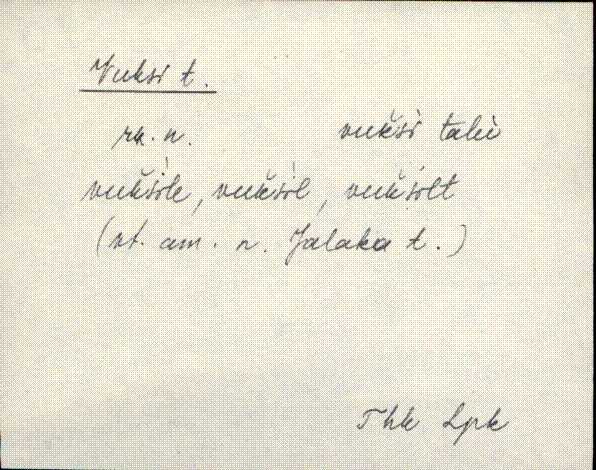 Vuksi t.
rk. n. vukši̬ talu
vukši̬le, vukši̬l, vukši̬lt
(vt. am. n. Jalaka t.)
Thk Lpk